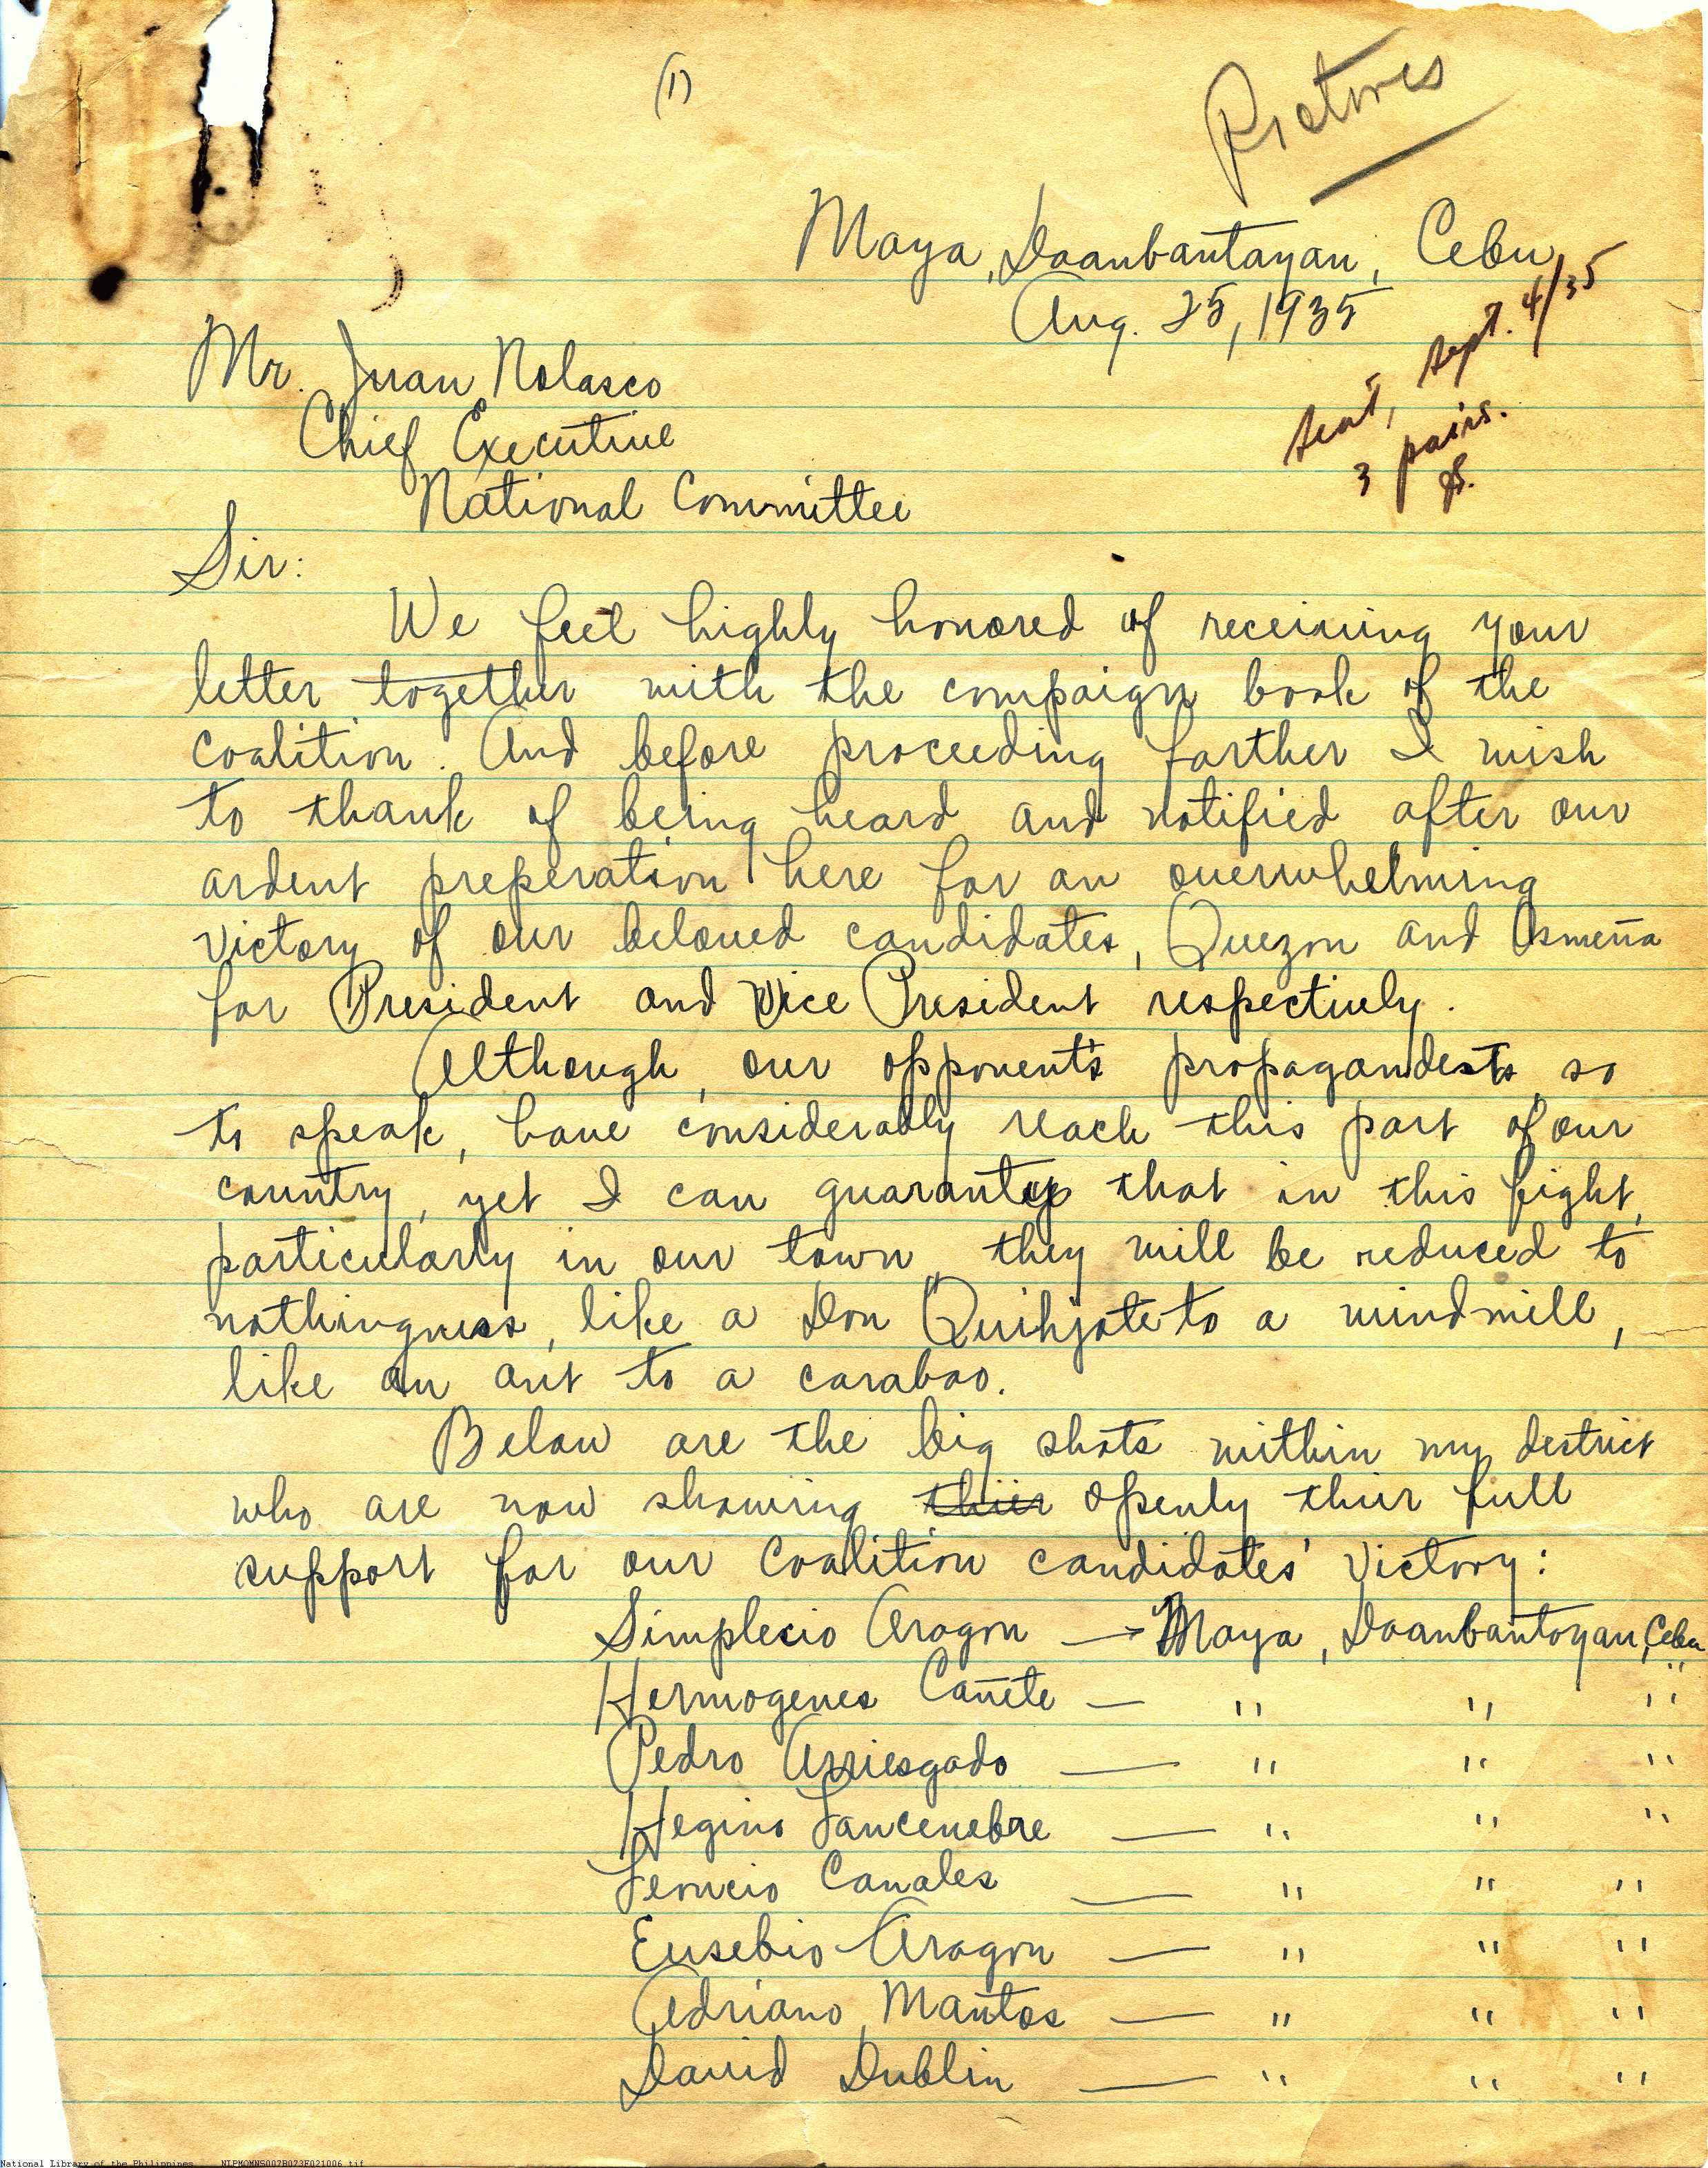 (1)
Pictures
Maya, Daanbantayan, Cebu
Aug. 25, 1935
sent, Sept. 4/35
3 pairs.
Mr. Juan Nolasco
Chief Executive
National Committee
Sir:
We feel highly honored of receiving your
letter together with the compaign book of the
Coalition. And before proceeding farther I wish
to thank of being heard and notified after our
ardent preperation here for an overwhelming
victory of our beloved candidates, Quezon and Osmeña
for President and Vice President respectively.
Although, our opponent's propagandests, so
to speak, have considerably reach this part of our
country, yet I can guarantee that in this fight,
particularly in our town, they will be reduced to
nothingness, like a Don Quihjote to a windmill,
like an ant to a carabao.
Below are the big shots within my destrict
who are now showing thier openly thier full
support for our Coalition candidates' victory:
Simplecio Aragon → Maya, Daanbantayan, Cebu
Hermogenes Cañete — " " "
Pedro Arriesgado — " " "
Hegino Lancenebre — " " "
Leoncio Canales — " " "
Eusebio Aragon — " " "
Adriano Mantos — " " "
David Dublin — " " "
National Library of the Philippines NLPMQMNS007B023F021006.tif